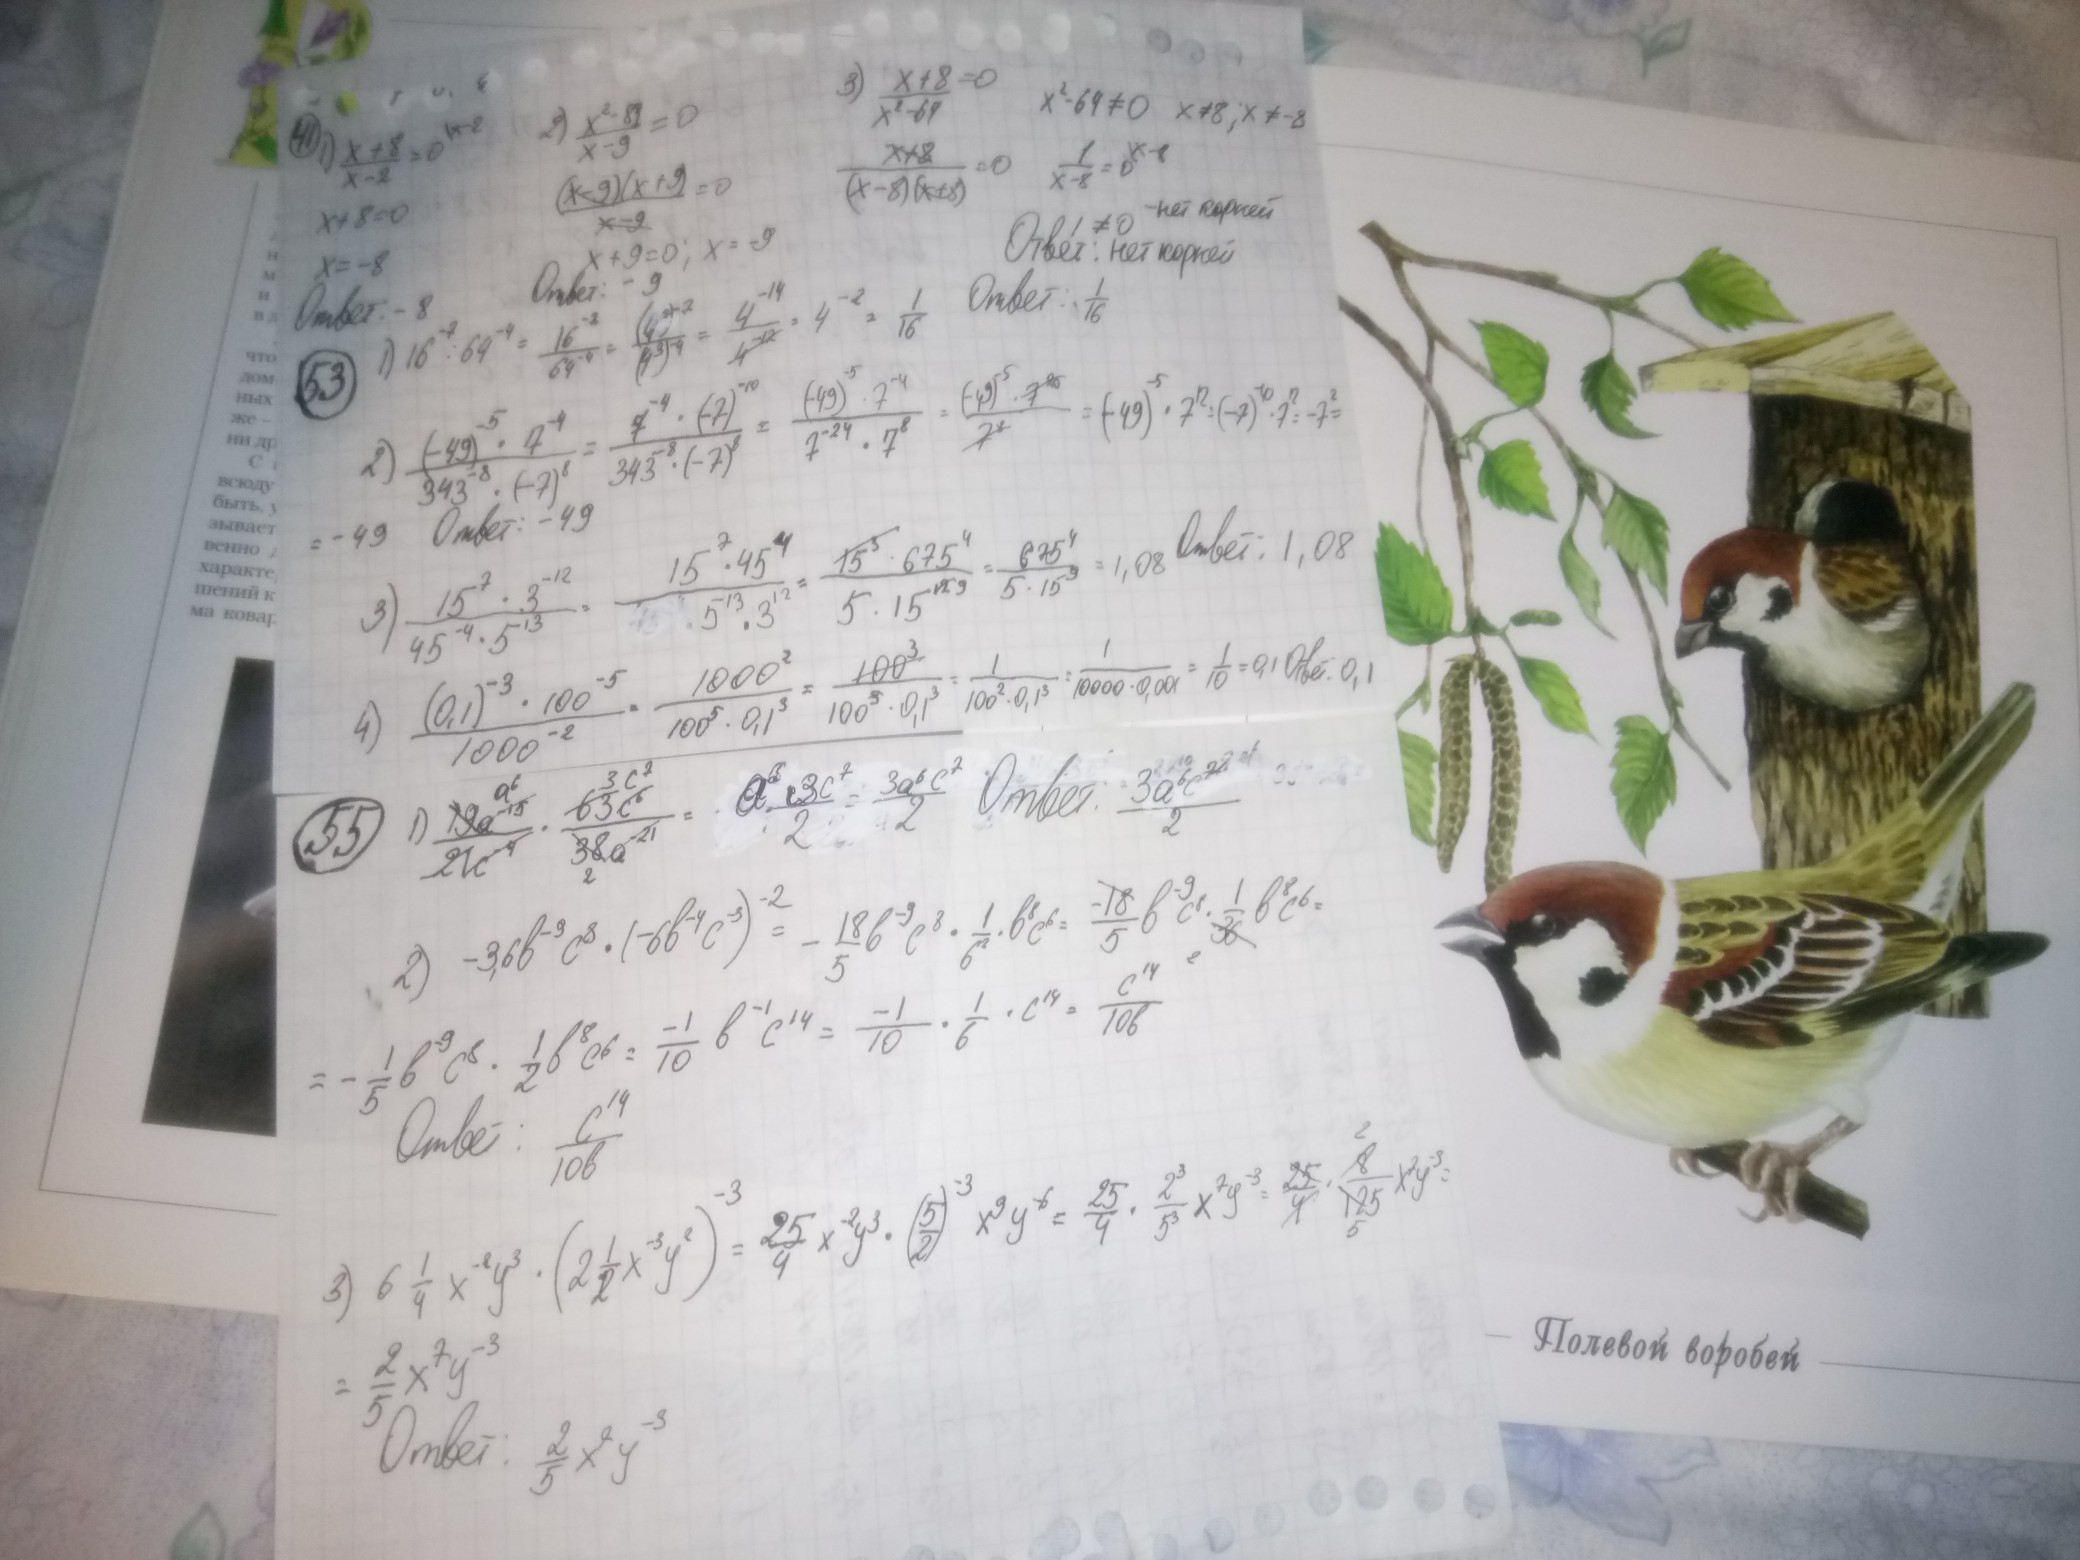 41) 1) (x+8)/(x-2) = 0 |x-2
x+8=0
x=-8
Ответ: -8
2) (x²-81)/(x-9) = 0
((x-9)(x+9))/(x-9) = 0
x+9=0; x=-9
Ответ: -9
3) (x+8)/(x²-64) = 0 x²-64≠0 x≠8; x≠-8
(x+8)/((x-8)(x+8)) = 0 1/(x-8) = 0 |x-8
1≠0 -нет корней
Ответ: нет корней
53 1) 16⁻⁷ : 64⁻⁴ = 16⁻⁷/64⁻⁴ = (4²)⁻⁷/(4³)⁻⁴ = 4⁻¹⁴/4⁻¹² = 4⁻² = 1/16 Ответ: 1/16
2) ((-49)⁻⁵ · 7⁻⁴)/(343⁻⁸ · (-7)⁸) = (7⁻⁴ · (-7)⁻¹⁰)/(343⁻⁸ · (-7)⁸) = ((-49)⁻⁵ · 7⁻⁴)/(7⁻²⁴ · 7⁸) = = (-49)⁻⁵ · 7¹² = (-7)⁻¹⁰ · 7¹² = -7² =
= -49 Ответ: -49
3) (15⁷ · 3⁻¹²)/(45⁻⁴ · 5¹³) = (15⁷ · 45⁴)/(5¹³ · 3¹²) = = 675⁴/(5 · 15⁹) = 1,08 Ответ: 1,08
4) ((0,1)⁻³ · 100⁻⁵)/1000⁻² = 1000²/(100⁵ · 0,1³) = 100³/(100⁵ · 0,1³) = 1/(100² · 0,1³) = 1/(10000 · 0,001) = 1/10 = 0,1 Ответ: 0,1
55 1) 19a⁻¹⁵/21c⁻⁴ · 63c⁶/38a⁻²¹ = = 3a⁶c⁷/2 Ответ: 3a⁶c⁷/2
2) -3,6b⁻⁹c⁸ · (-6b⁻⁴c⁻³)⁻² = -18/5 b⁻⁹c⁸ · 1/6² · b⁸c⁶ = -18/5 b⁻⁹c⁸ · 1/36 b⁸c⁶ =
= -1/5 b⁻⁹c⁸ · 1/2 b⁸c⁶ = -1/10 b⁻¹c¹⁴ = -1/10 · 1/b · c¹⁴ = c¹⁴/10b
Ответ: c¹⁴/10b
3) 6 1/4 x⁻²y³ · (2 1/2 x⁻³y²)⁻³ = 25/4 x⁻²y³ · (5/2)⁻³ x⁹y⁻⁶ = 25/4 · 2³/5³ x⁷y⁻³ = 25/4 · 8/125 x⁷y⁻³ =
= 2/5 x⁷y⁻³
Ответ: 2/5 x⁷y⁻³
что
дом
ных
же –
ни др
С
всюду
быть, у
зывает
венно
характе
шений к
ма ковар
Полевой воробей